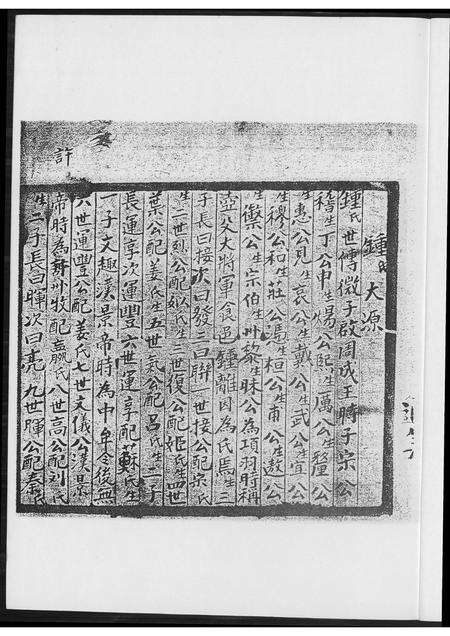 鍾氏大源
鍾氏世傳微子啟周成王時子宗公
稽生丁公申生煬公熙生厲公生釐公
生惠公見生哀公生戴公生武公生宣公
生穆公和生莊公馮生桓公生甫公生敖公
生衡公生宗伯生州黎生昧公為項羽時稱
亞父大將軍食邑鍾離因為氏焉生三
子長曰接次曰發三曰聯一世接公配宗氏
生二世烈公配姒氏生三世復公配姬氏生四世
葉公配姜氏生五世氣公配呂氏生二子
長運享次運豐六世運享配蘇氏生
一子文趣漢景帝時為中牟令後無
六世運豐公配姜氏七世文儀公漢景
帝時為荊州牧配嬴氏八世高公配劉氏
生二子長曰暉次曰亮九世暉公配秦氏
許